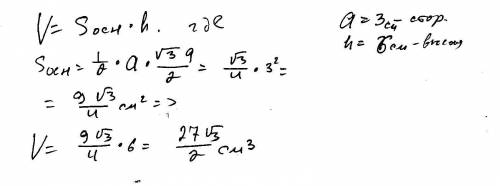 V = Sосн · h. где
a = 3 см стор.
h = 6 см - высот
Sосн = 1/2 · a · √3 a/2 = √3/4 · 3² =
= 9√3/4 см² =>
V = 9√3/4 · 6 = 27√3/2 см³